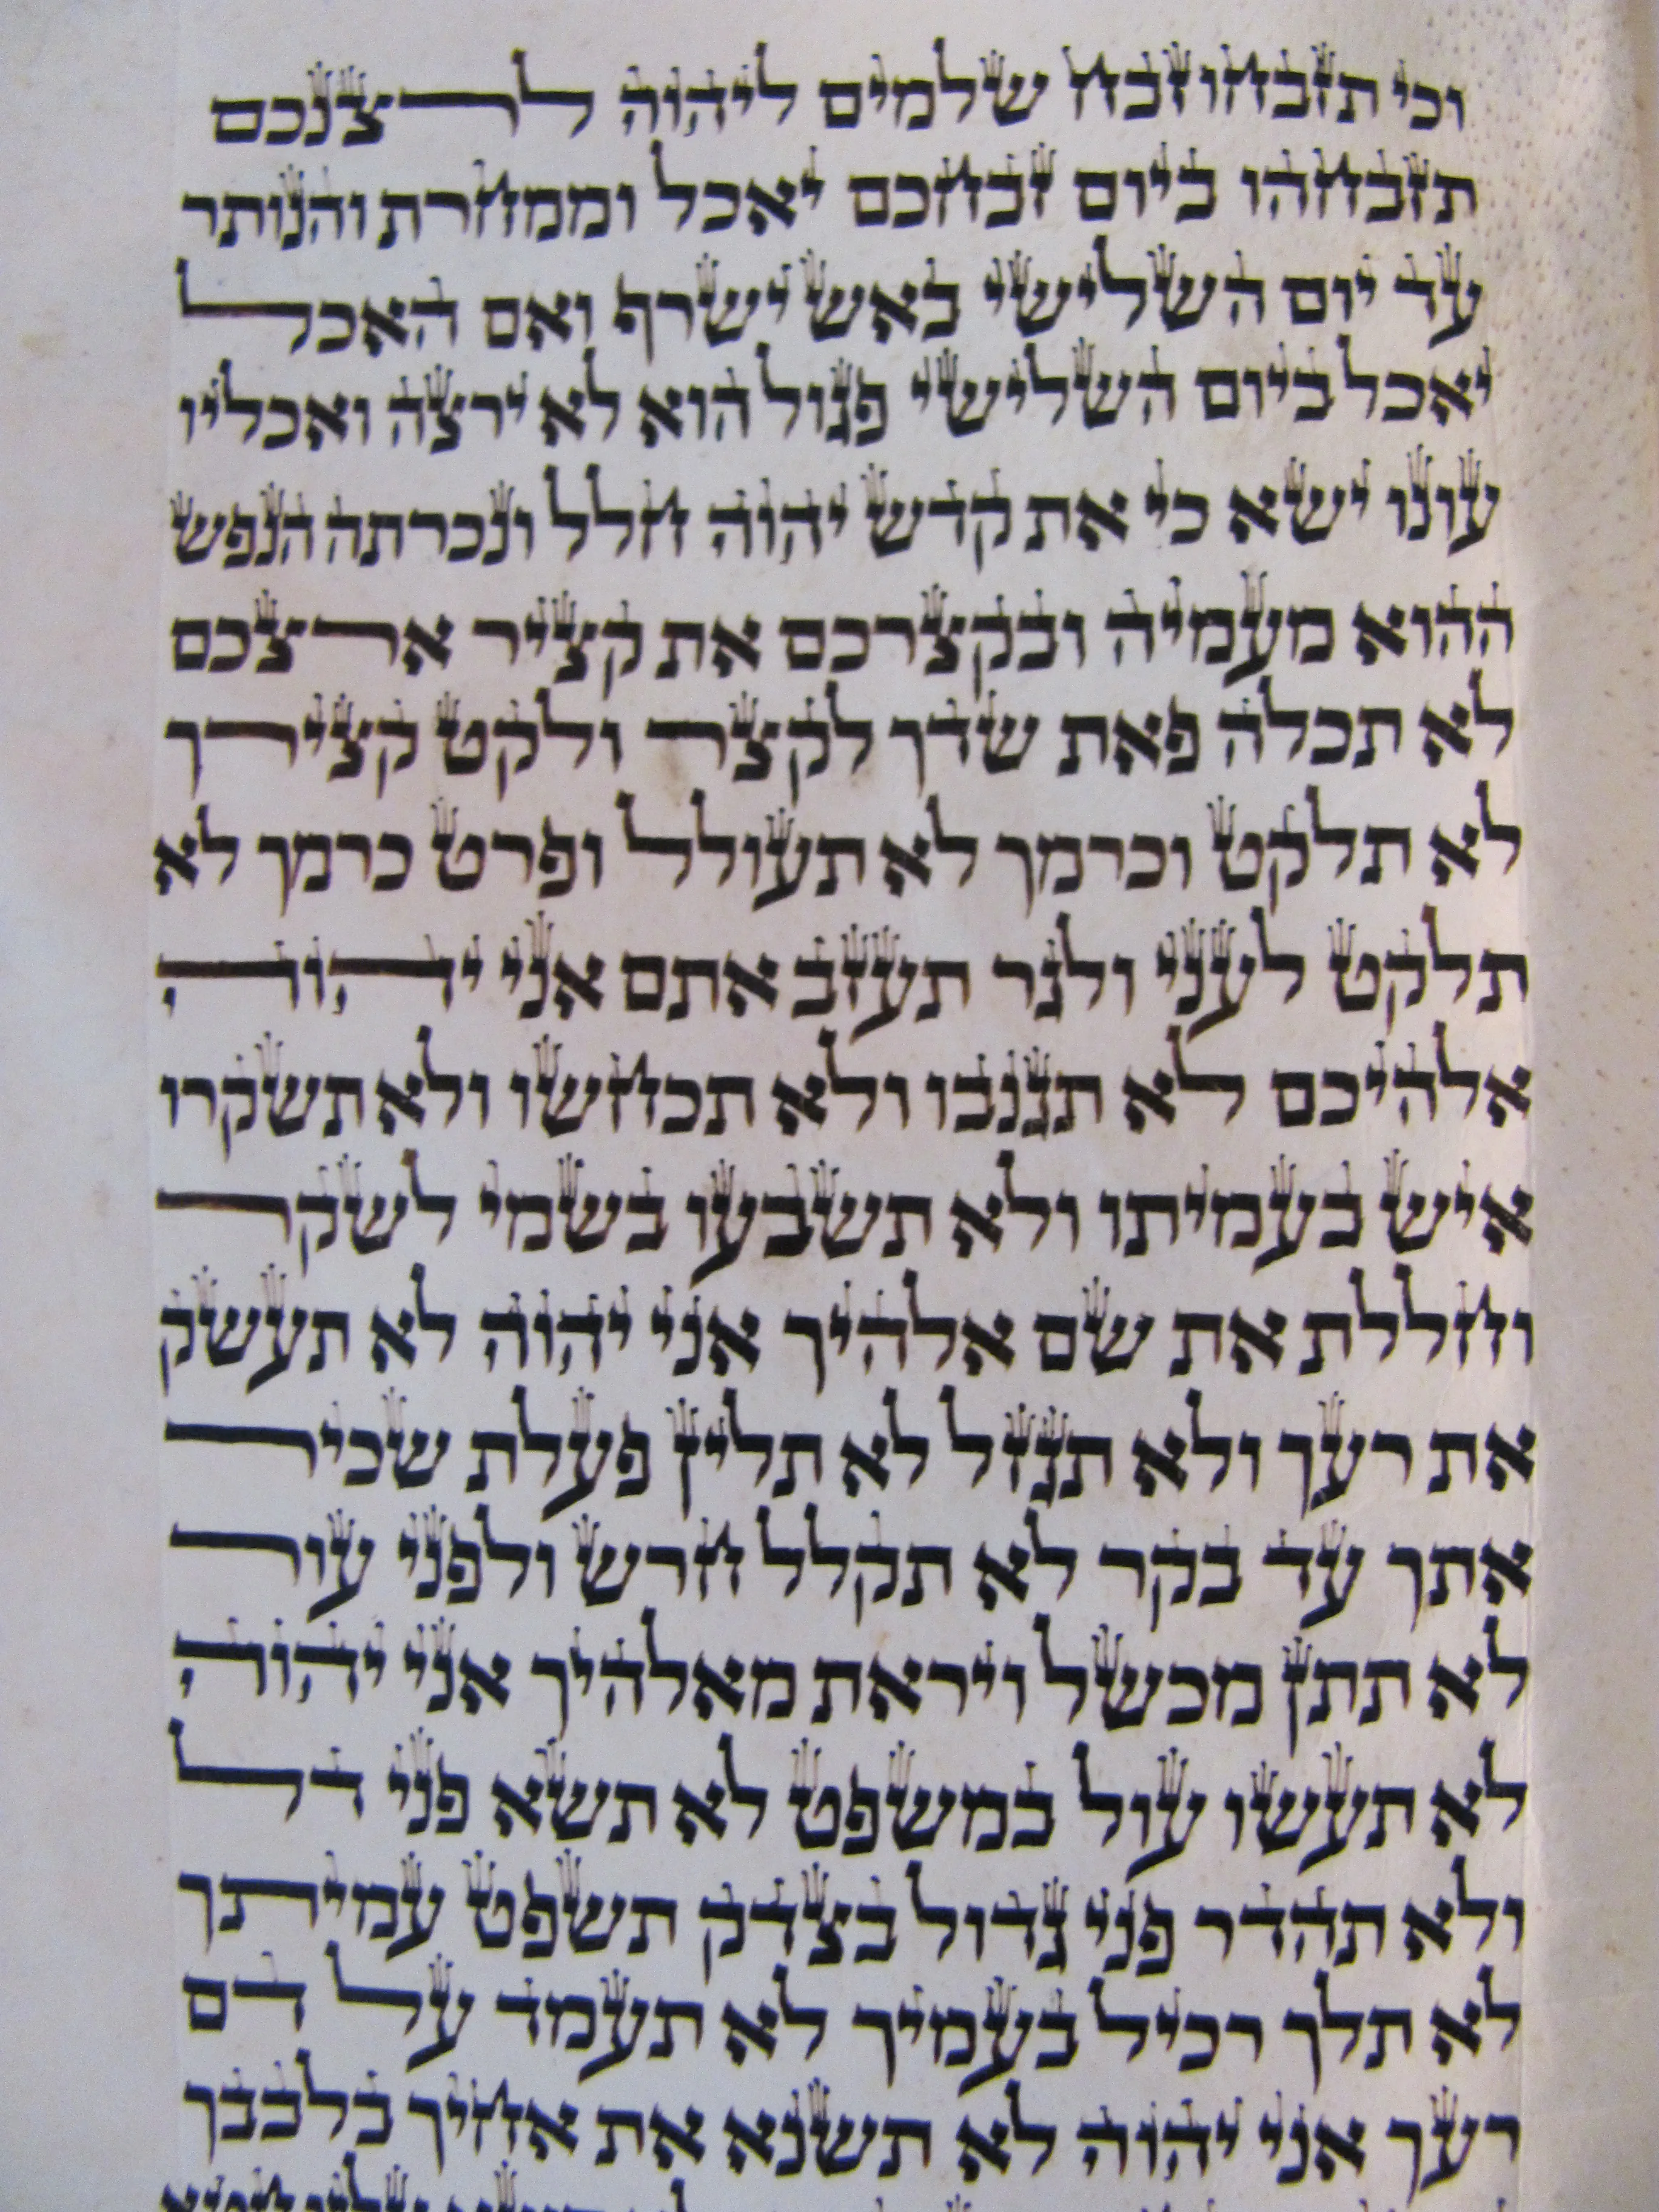 וכי תזבחו זבח שלמים ליהוה לרצנכם
תזבחהו ביום זבחכם יאכל וממחרת והנותר
עד יום השלישי באש ישרף ואם האכל
יאכל ביום השלישי פגול הוא לא ירצה ואכליו
עונו ישא כי את קדש יהוה חלל ונכרתה הנפש
ההוא מעמיה ובקצרכם את קציר ארצכם
לא תכלה פאת שדך לקצר ולקט קצירך
לא תלקט וכרמך לא תעולל ופרט כרמך לא
תלקט לעני ולגר תעזב אתם אני יהוה
אלהיכם לא תגנבו ולא תכחשו ולא תשקרו
איש בעמיתו ולא תשבעו בשמי לשקר
וחללת את שם אלהיך אני יהוה לא תעשק
את רעך ולא תגזל לא תלין פעלת שכיר
אתך עד בקר לא תקלל חרש ולפני עור
לא תתן מכשל ויראת מאלהיך אני יהוה
לא תעשו עול במשפט לא תשא פני דל
ולא תהדר פני גדול בצדק תשפט עמיתך
לא תלך רכיל בעמיך לא תעמד על דם
רעך אני יהוה לא תשנא את אחיך בלבבך